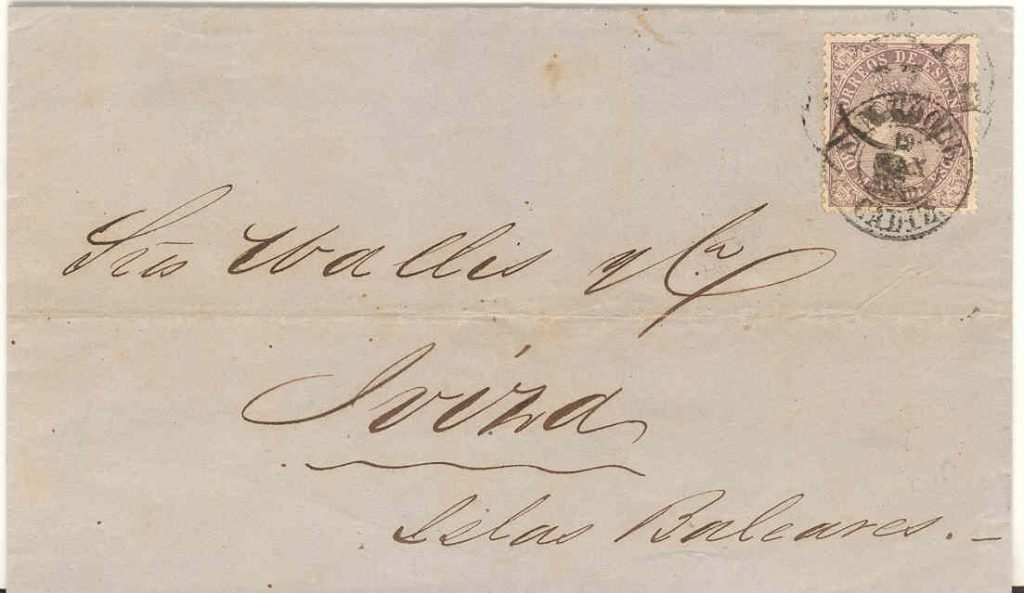 CORREOS DE ESPAÑ
S. ROQUE
19
CADIZ
Sres Wallis y Ca
Iviza
Islas Baleares.-